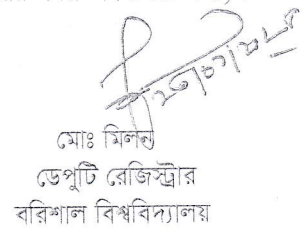 মোঃ মিলন
ডেপুটি রেজিস্ট্রার
বরিশাল বিশ্ববিদ্যালয়